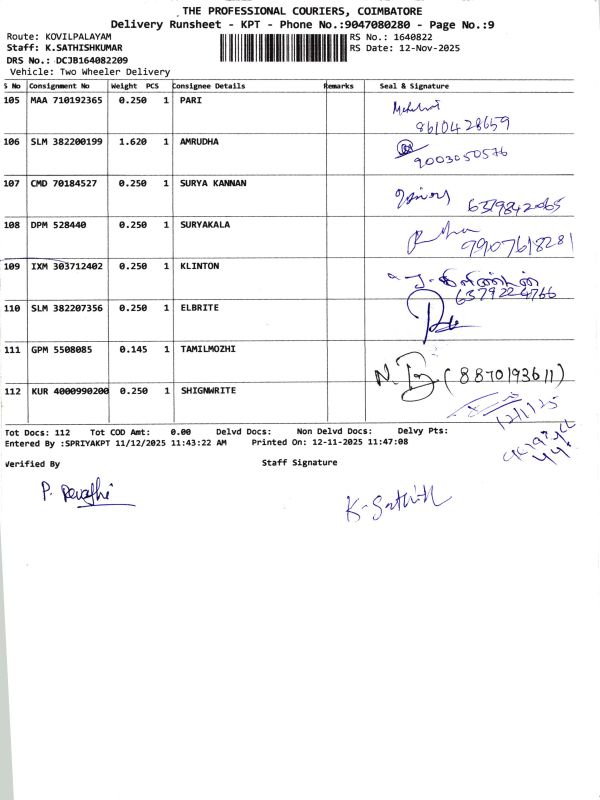 THE PROFESSIONAL COURIERS, COIMBATORE
Delivery Runsheet - KPT - Phone No.:9047080280 - Page No.:9
Route: KOVILPALAYAM RS No.: 1640822
Staff: K.SATHISHKUMAR RS Date: 12-Nov-2025
DRS No.: DCJB164082209
Vehicle: Two Wheeler Delivery
S No Consignment No Weight PCS Consignee Details Remarks Seal & Signature
105 MAA 710192365 0.250 1 PARI
8610428659
106 SLM 382200199 1.620 1 AMRUDHA
9003050576
107 CMD 70184527 0.250 1 SURYA KANNAN
6379842065
108 DPM 528440 0.250 1 SURYAKALA
9907618281
109 IXM 303712402 0.250 1 KLINTON
6379224766
110 SLM 382207356 0.250 1 ELBRITE
111 GPM 5508085 0.145 1 TAMILMOZHI
(8870193611)
112 KUR 4000990200 0.250 1 SHIGNWRITE
12/11/25
Tot Docs: 112 Tot COD Amt: 0.00 Delvd Docs: Non Delvd Docs: Delvy Pts:
Entered By :SPRIYAKPT 11/12/2025 11:43:22 AM Printed On: 12-11-2025 11:47:08
Verified By Staff Signature
P. Revathi K-Sathish